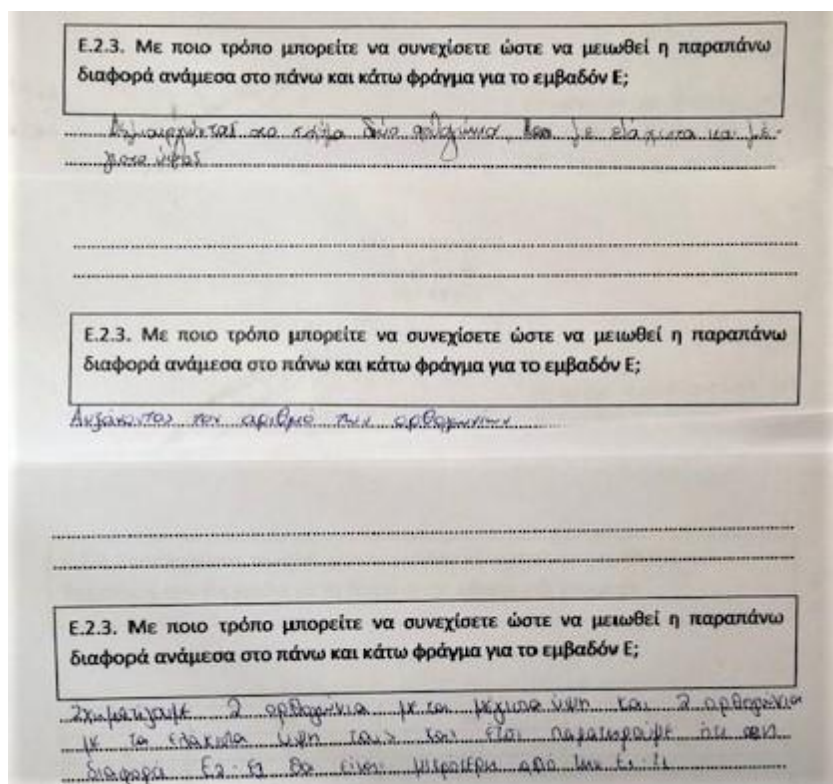 Ε.2.3. Με ποιο τρόπο μπορείτε να συνεχίσετε ώστε να μειωθεί η παραπάνω
διαφορά ανάμεσα στο πάνω και κάτω φράγμα για το εμβαδόν Ε;
Δημιουργώντας στο σχήμα δύο ορθογώνια, με ελάχιστα και μέ-
γιστα ύψη
Ε.2.3. Με ποιο τρόπο μπορείτε να συνεχίσετε ώστε να μειωθεί η παραπάνω
διαφορά ανάμεσα στο πάνω και κάτω φράγμα για το εμβαδόν Ε;
Αυξάνοντας τον αριθμό των ορθογωνίων
Ε.2.3. Με ποιο τρόπο μπορείτε να συνεχίσετε ώστε να μειωθεί η παραπάνω
διαφορά ανάμεσα στο πάνω και κάτω φράγμα για το εμβαδόν Ε;
Σχηματίζουμε 2 ορθογώνια με τα μέγιστα ύψη και 2 ορθογώνια
με τα ελάχιστα ύψη τους και έτσι παρατηρούμε ότι
διαφορά θα είναι μικρότερη από την